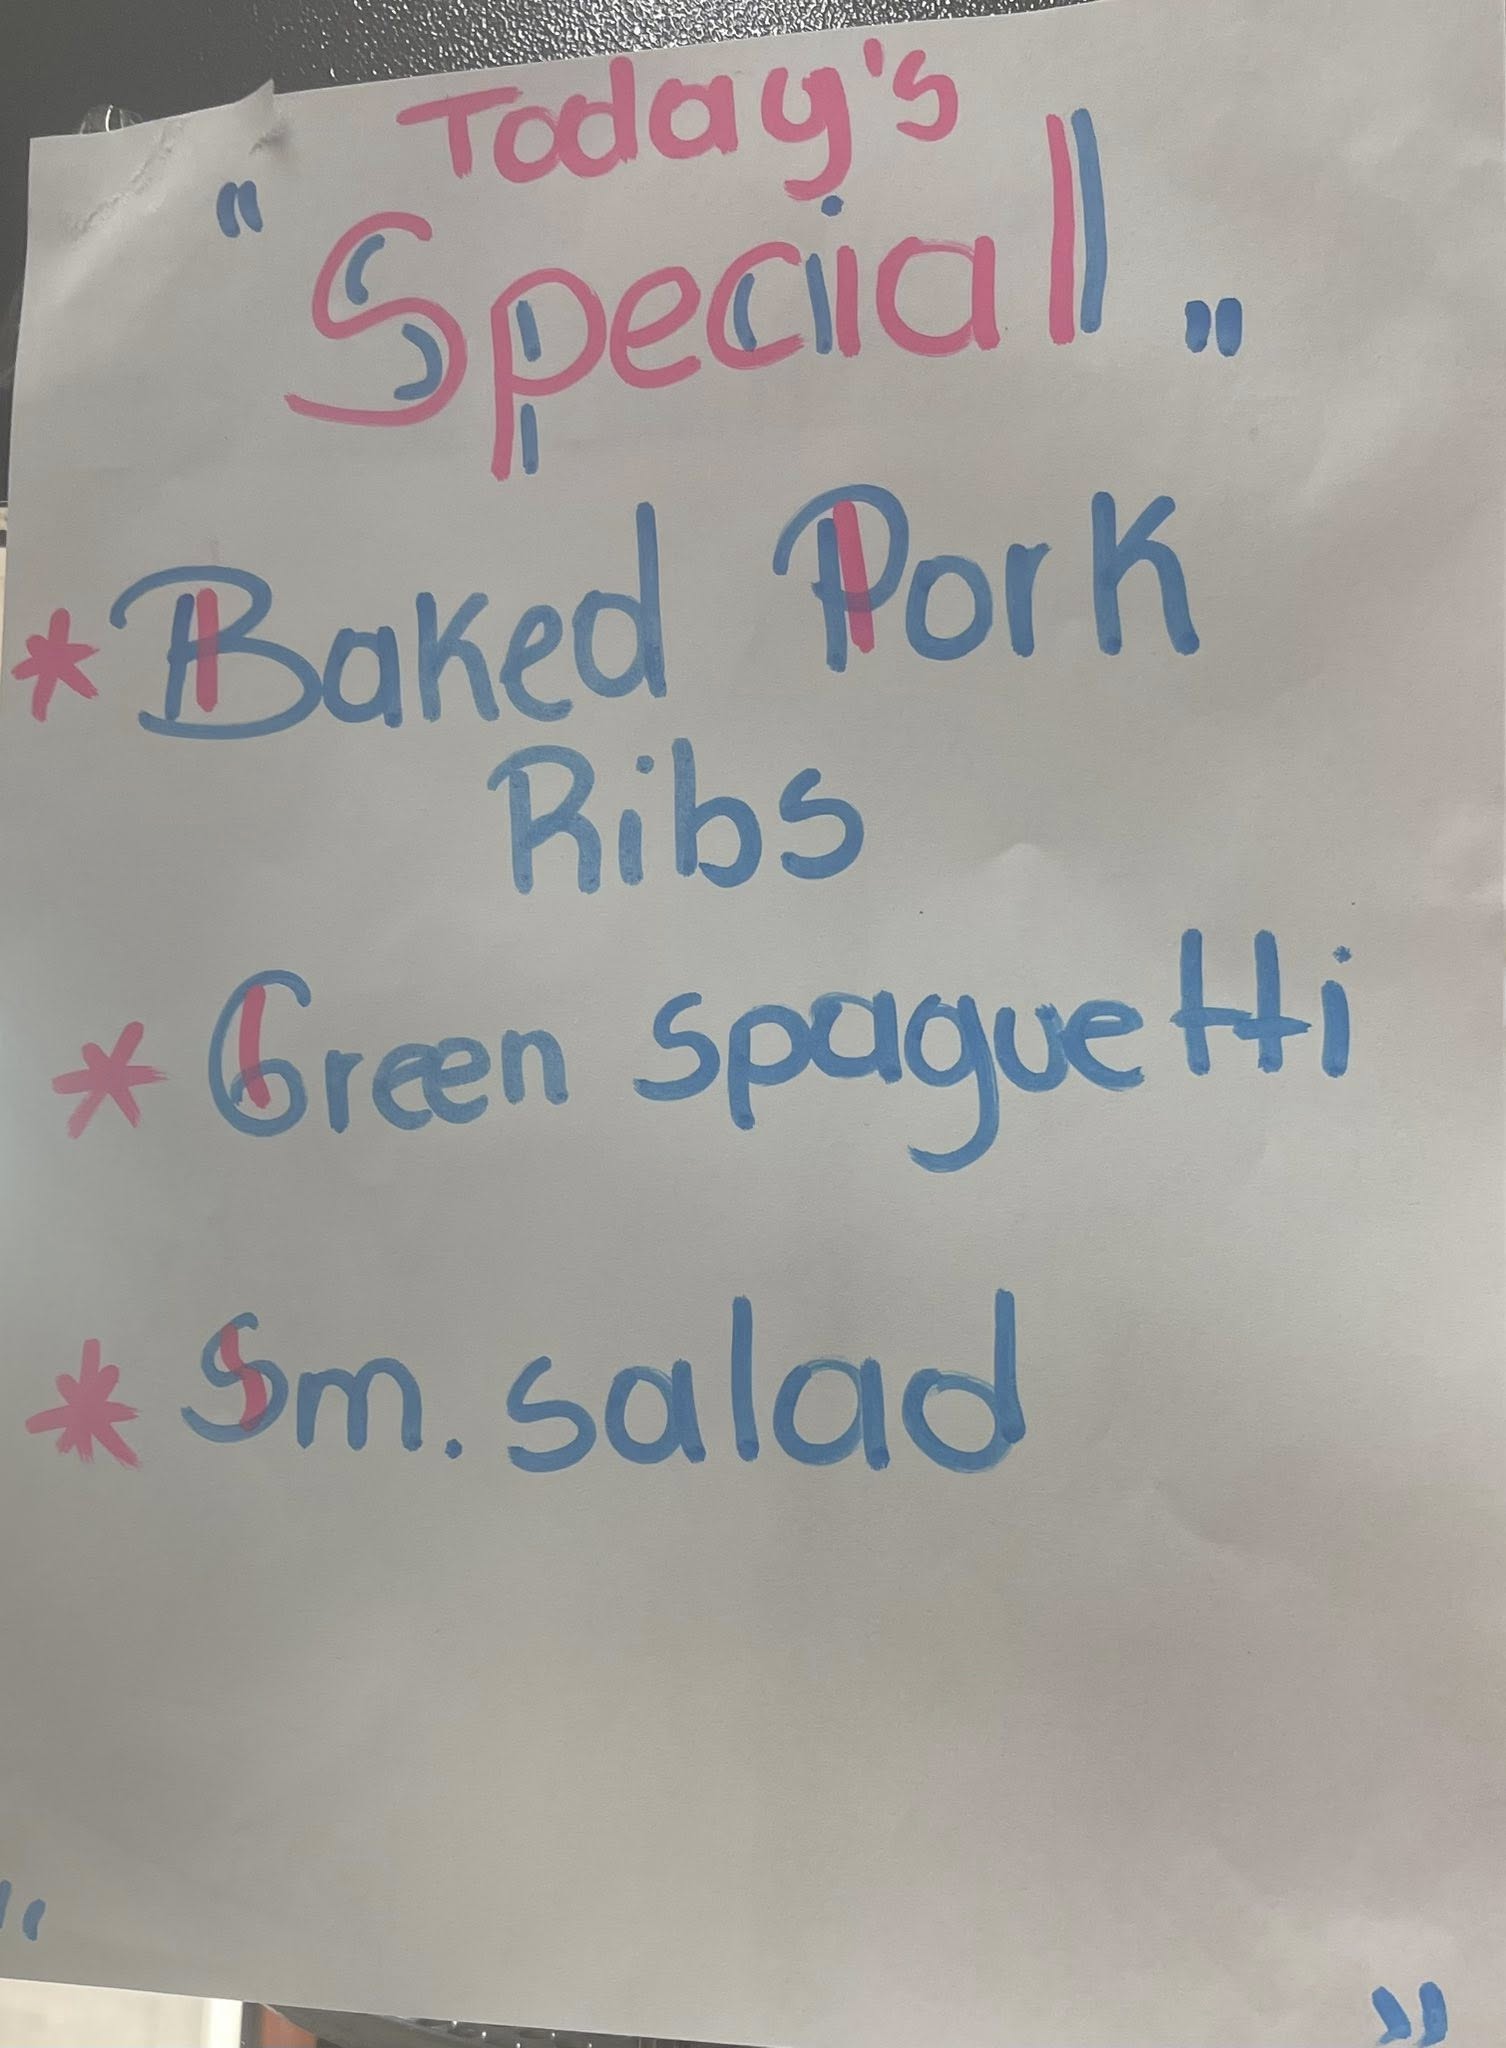 Today's
"Special"
* Baked Pork
Ribs
* Green spaguetti
* Sm. salad
" "